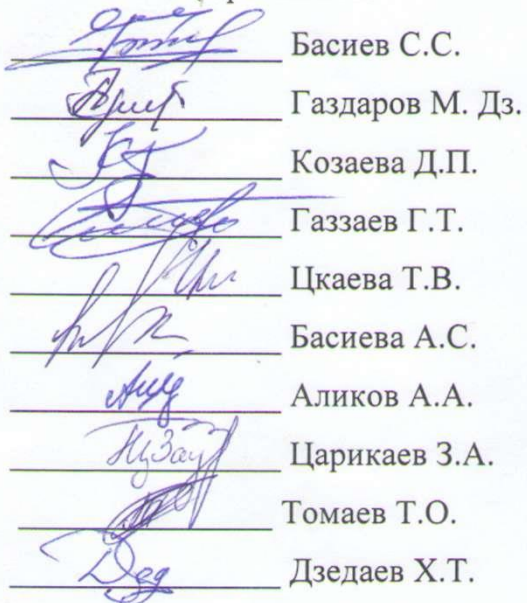 Басиев С.С.
Газдаров М. Дз.
Козаева Д.П.
Газзаев Г.Т.
Цкаева Т.В.
Басиева А.С.
Аликов А.А.
Царикаев З.А.
Томаев Т.О.
Дзедаев Х.Т.